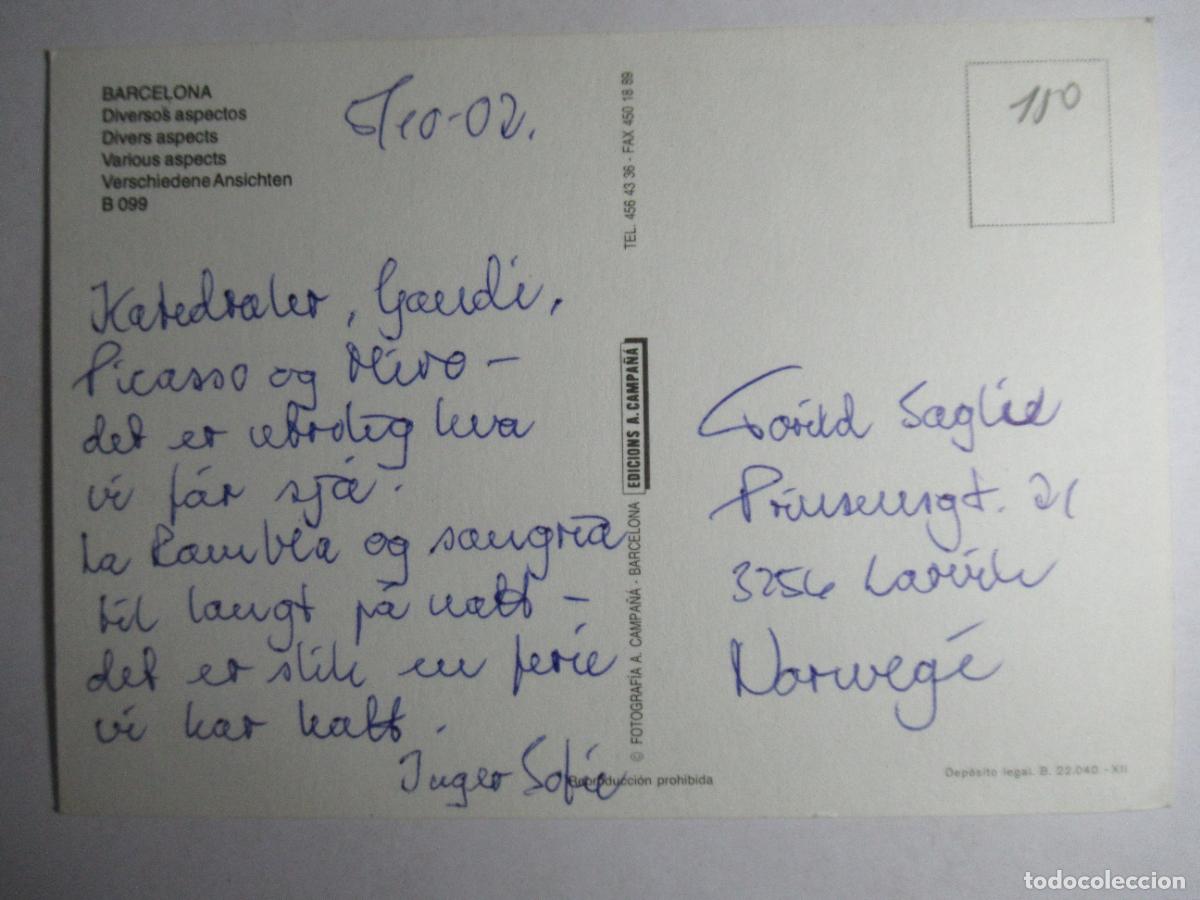 BARCELONA
Diversos aspectos
Divers aspects
Various aspects
Verschiedene Ansichten
B 099
5/10-02.
Katedraler, Gaudi,
Picasso og Miro –
det er utrolig hva
vi får sjå.
La Rambla og sangria
til langt på natt –
det er slik en ferie
vi har hatt.
Inger Sofie
TEL. 456 43 36 - FAX 450 18 89
EDICIONS A. CAMPAÑÁ
© FOTOGRAFÍA A. CAMPAÑÁ - BARCELONA
Reproducción prohibida
150
Torild Saglie
Prinsensgt. 21
3256 Larvik
Norwegé
Depósito legal. B. 22.040 - XII
todocoleccion